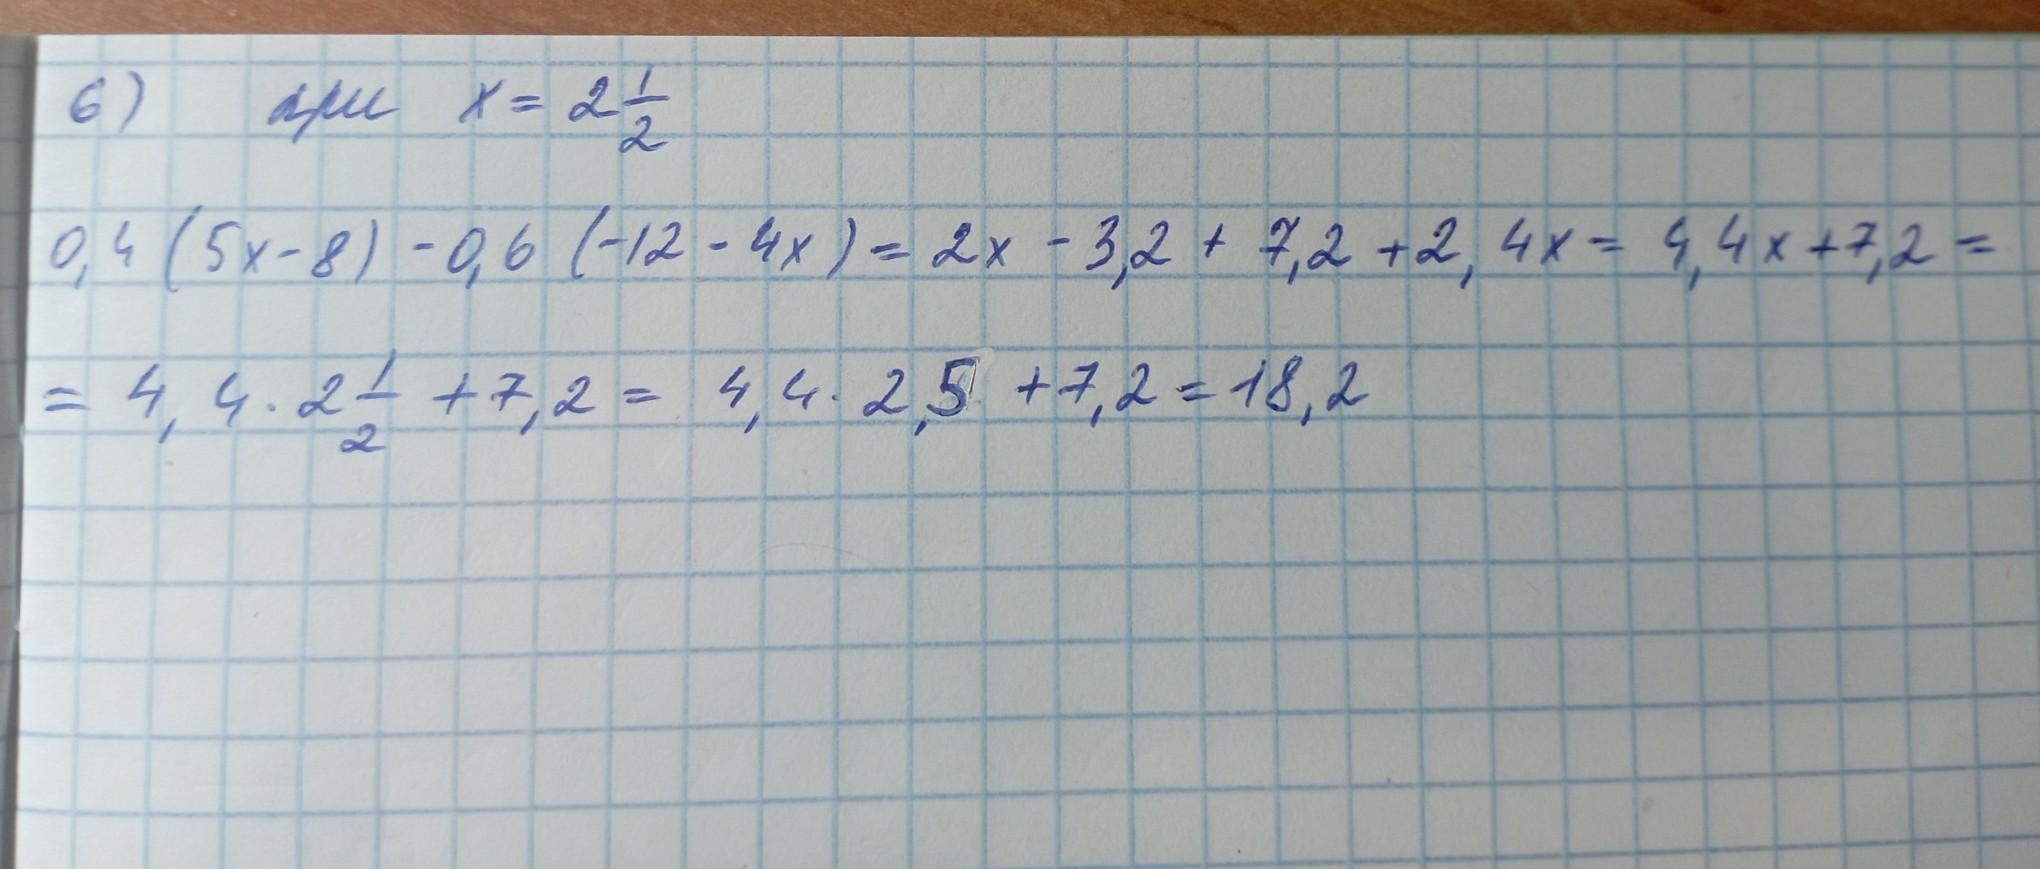 6) при x = 2 1/2
0,4 (5x - 8) - 0,6 (-12 - 4x) = 2x - 3,2 + 7,2 + 2,4x = 4,4x + 7,2 =
= 4,4 · 2 1/2 + 7,2 = 4,4 · 2,5 + 7,2 = 18,2